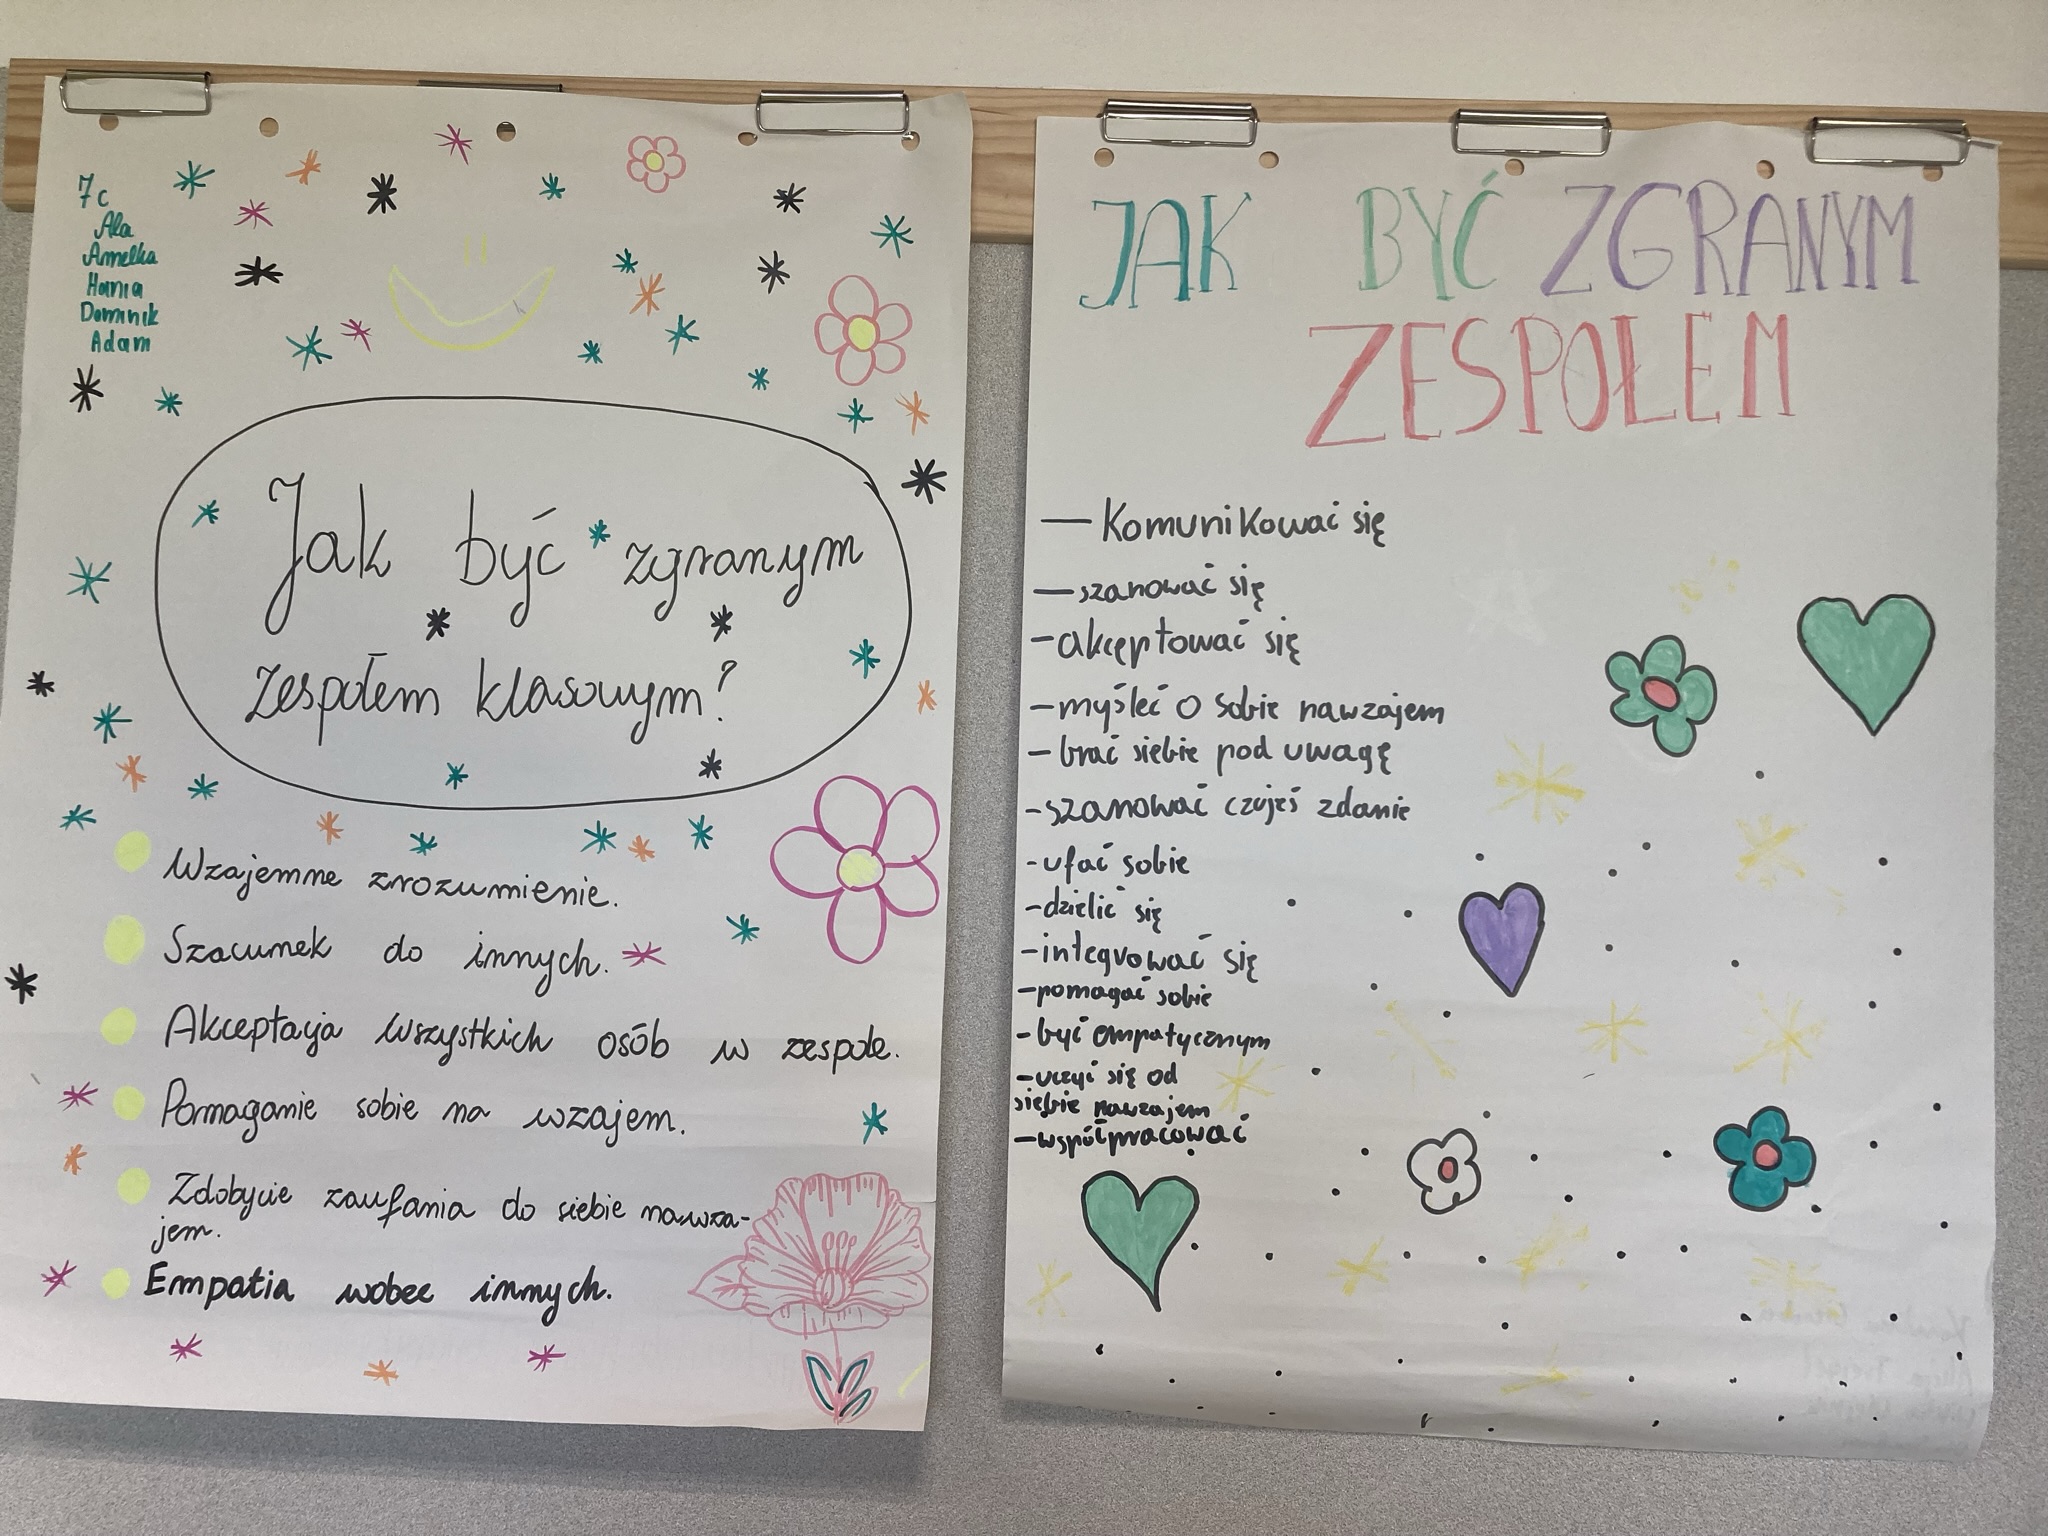 7c
Ala
Amelka
Hania
Dominik
Adam
Jak być zgranym
zespołem klasowym?
Wzajemne zrozumienie.
Szacunek do innych.
Akceptacja wszystkich osób w zespole.
Pomaganie sobie na wzajem.
Zdobycie zaufania do siebie nawza-
jem.
Empatia wobec innych.
JAK BYĆ ZGRANYM
ZESPOŁEM
— Komunikować się
— szanować się
- akceptować się
- myśleć o sobie nawzajem
- brać siebie pod uwagę
- szanować czajeś zdanie
- ufać sobie
- dzielić się
- integrować się
- pomagać sobie
- być empatycznym
- uczyć się od
siebie nawzajem
- współpracować